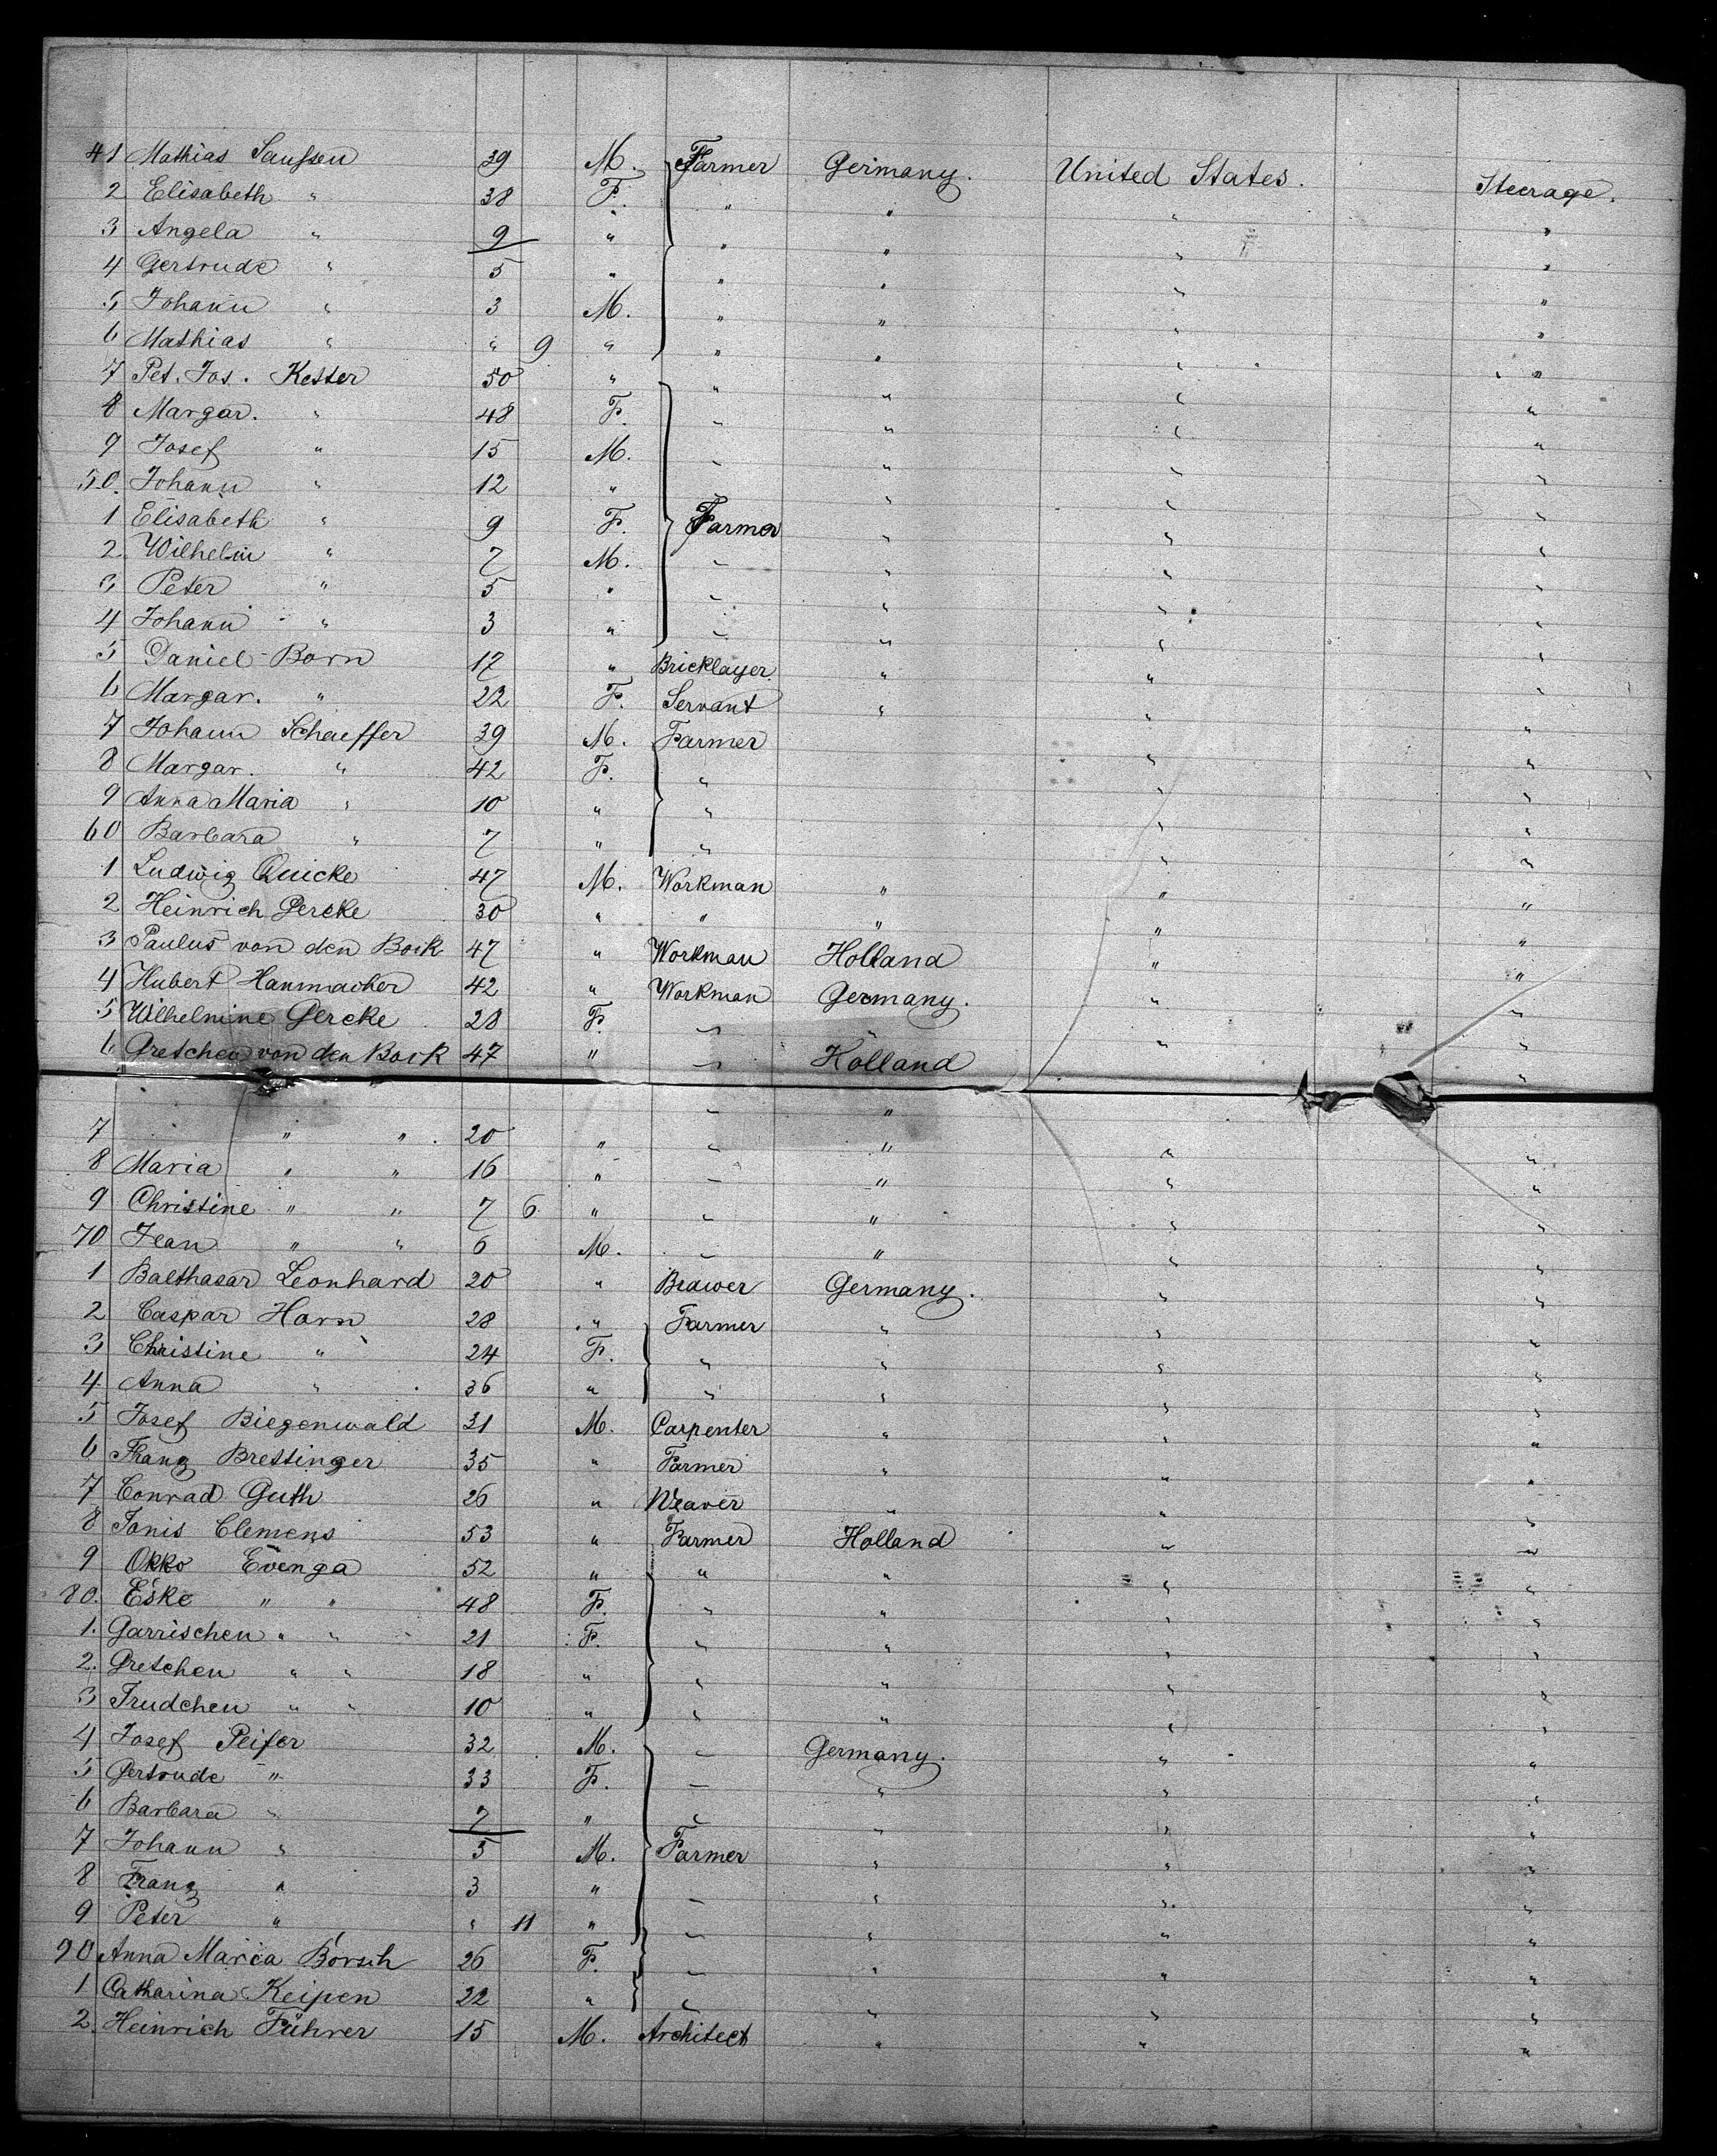 41 Mathias Saussen 39 M. Farmer Germany. United States. Steerage.
2 Elisabeth " 38 F. " " " "
3 Angela " 9 " " " " "
4 Gertrude " 5 " " " " "
5 Johann " 3 M. " " " "
6 Mathias " " 9 " " " " "
7 Pet. Jos. Kester 50 " " " " "
8 Margar. " 48 F. " " " "
9 Josef " 15 M. " " " "
50. Johann " 12 " " " "
1 Elisabeth " 9 F. Farmer " " "
2. Wilhelm " 7 M. " " " "
3 Peter " 5 " " " " "
4 Johann " 3 " " " " "
5 Daniel Born 17 " Bricklayer " " "
6 Margar. " 22 F. Servant " " "
7 Johann Schaeffer 39 M. Farmer " "
8 Margar. " 42 F. " " "
9 Anna Maria " 10 " " " "
60 Barbara " 7 " " " "
1 Ludwig Quicke 47 M. Workman " " "
2 Heinrich Gercke 30 " " " " "
3 Paulus von den Bock 47 " Workman Holland " "
4 Hubert Hammacher 42 " Workman Germany. " "
5 Wilhelmine Gercke 28 F. " " " "
6 Gretchen von den Bock 47 " " Holland "
7 " " 20 " " " " "
8 Maria " " 16 " " " " "
9 Christine " " 7 6 " " " " "
70 Jean " " 6 M. " " " "
1 Balthasar Leonhard 20 " Brawer Germany. " "
2 Caspar Horn 28 " Farmer " " "
3 Christine " 24 F. " " " "
4 Anna " 36 " " " " "
5 Josef Biegenwald 31 M. Carpenter " " "
6 Franz Brettinger 35 " Farmer " " "
7 Conrad Guth 26 " Weaver " " "
8 Tonis Clemens 53 " Farmer Holland " "
9 Okko Evenga 52 " " " " "
80. Eske " " 48 F. " " " "
1. Garrischen " " 21 F. " " " "
2. Gretchen " " 18 " " " " "
3 Trudchen " " 10 " " " " "
4 Josef Peifer 32 M. " Germany. " "
5 Gertrude " 33 F. " " " "
6 Barbara " 7 " " " " "
7 Johann " 5 M. Farmer " " "
8 Franz " 3 " " " " "
9 Peter " " 11 " " " " "
90 Anna Maria Börsch 26 F. " " " "
1 Catharina Keipen 22 " " " " "
2. Heinrich Führer 15 M. Architect " " "